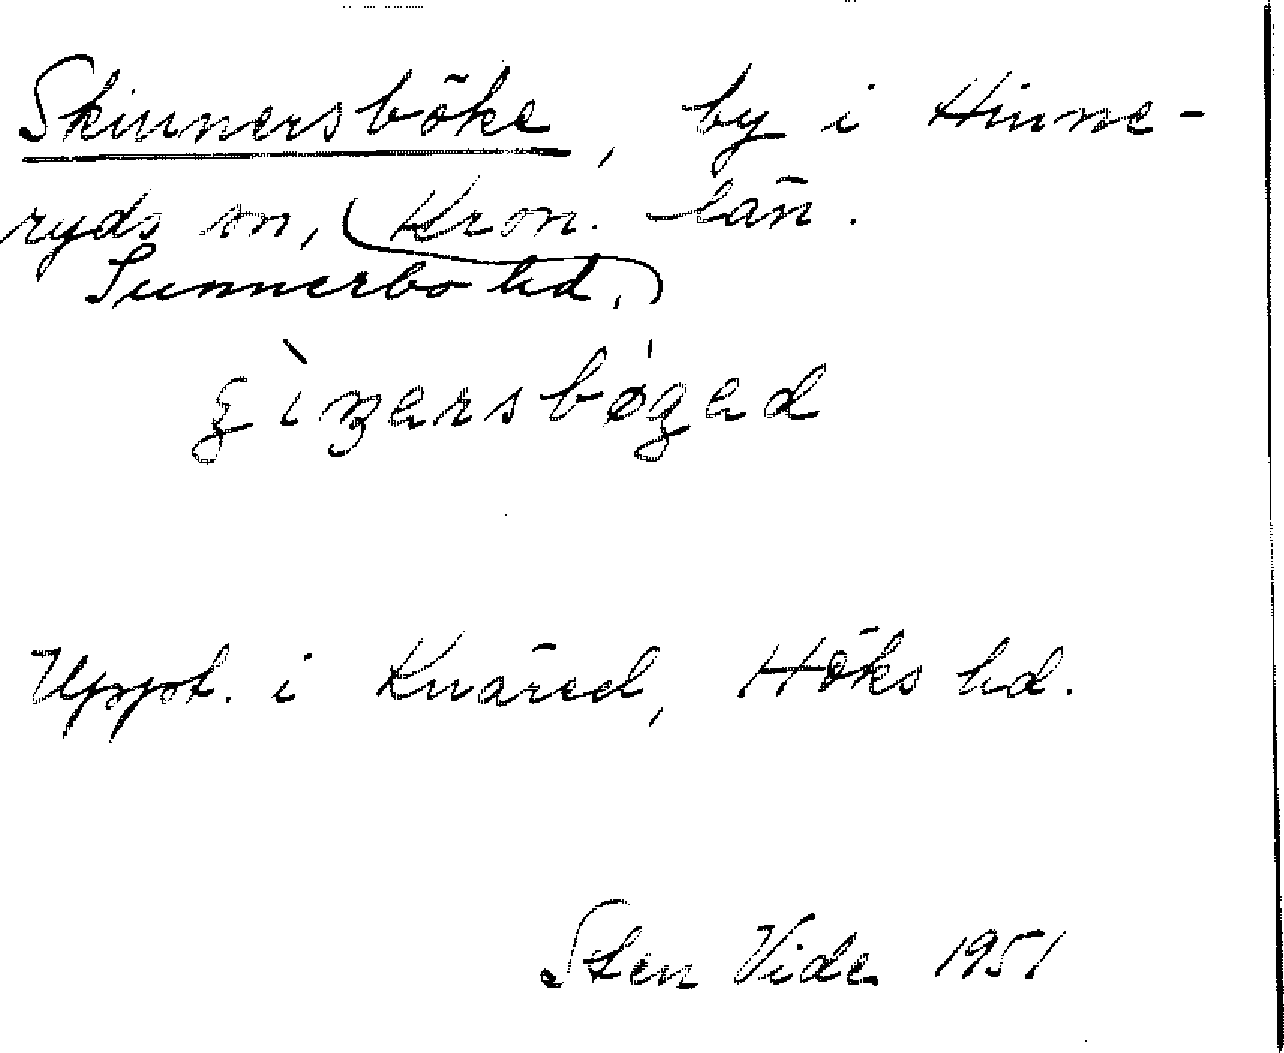 Skinnersböke, by i Hinne-
ryds sn, Kron. län.
Sunnerbo hd.
Uppt. i Knäred, Höks hd.
Sten Vide 1951